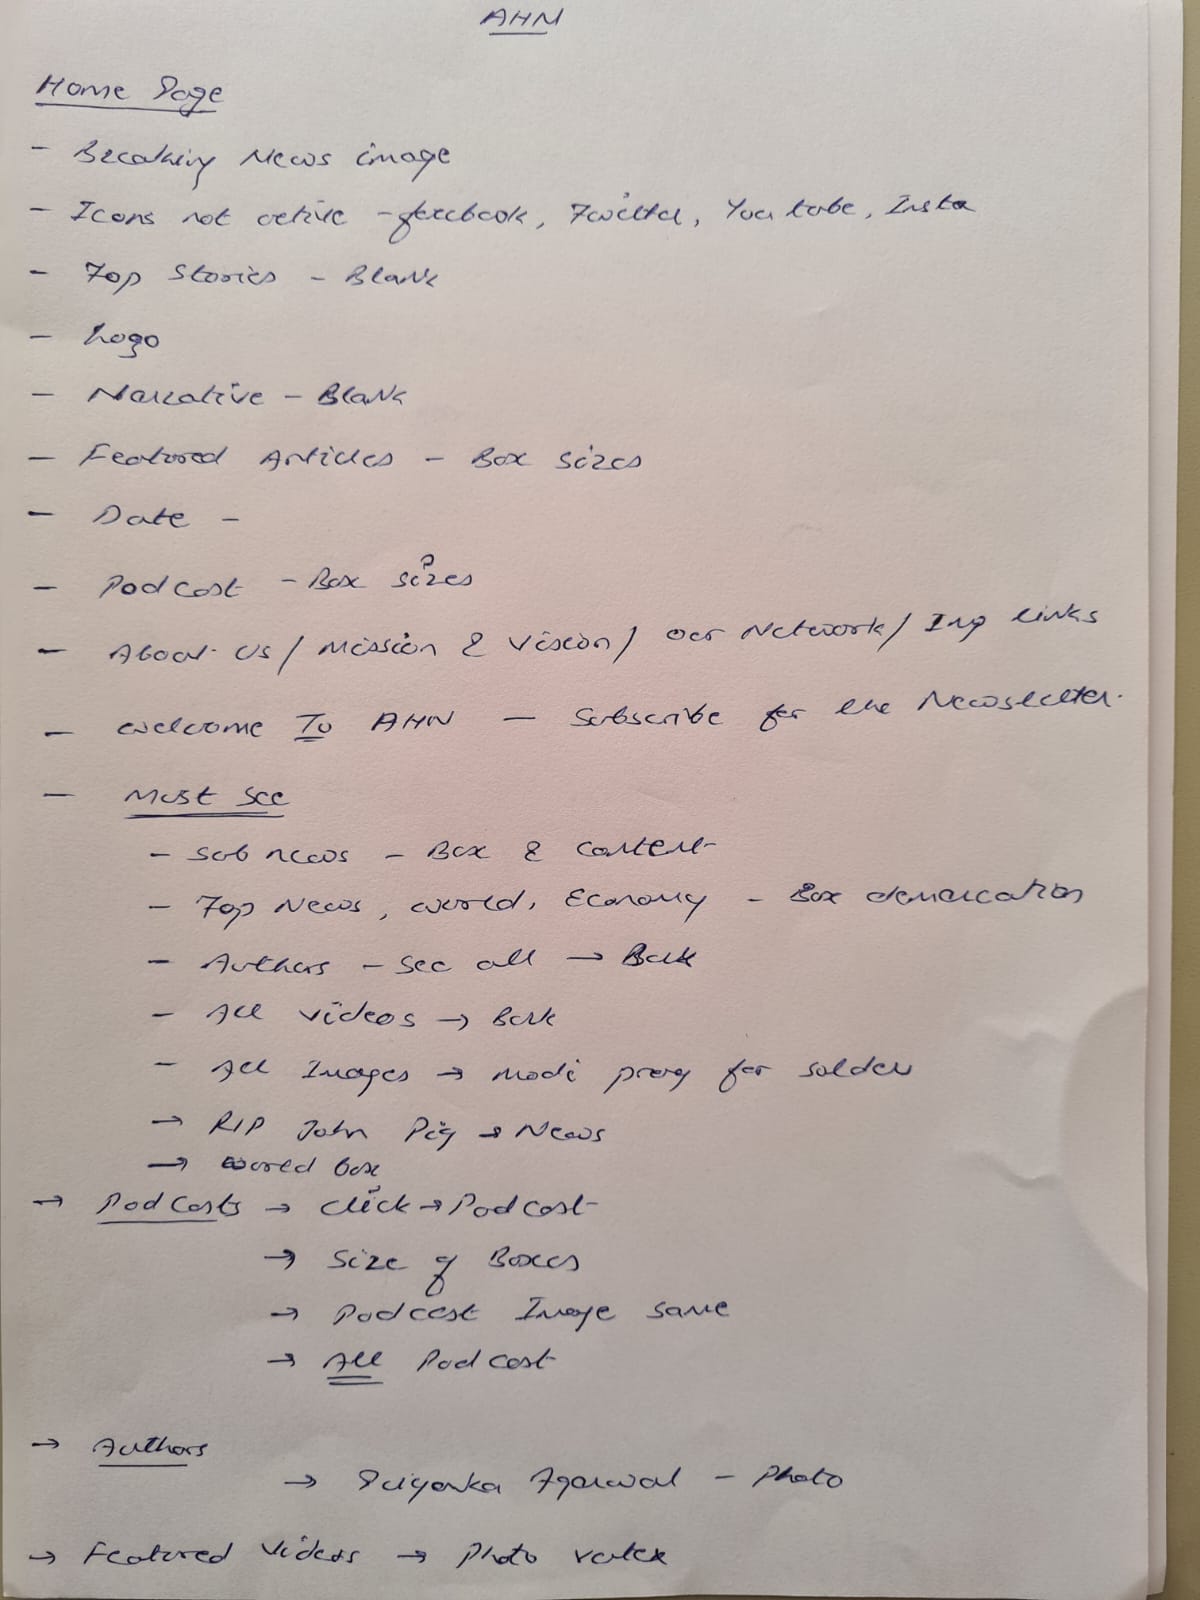 AHN
Home Page
- Breaking News image
- Icons not active - facebook, Twitter, You tube, Insta
- Top Stories - Blank
- Logo
- Narrative - Blank
- Featured Articles - Box sizes
- Date -
- Podcast - Box sizes
- About Us / Mission & Vision / Our Network / Imp links
- Welcome To AHN - Subscribe for the Newsletter.
- Must See
- Sub news - Box & content
- Top News, World, Economy - Box demarcation
- Authors - See all → Back
- All videos → Back
- All Images → Modi pray for
→ RIP John → News
→ World box
→ Podcasts → Click → Podcast
→ Size of Boxes
→ Podcast Image same
→ All Podcast
→ Authors
→ Priyanka Agarwal - Photo
→ Featured Videos → Photo